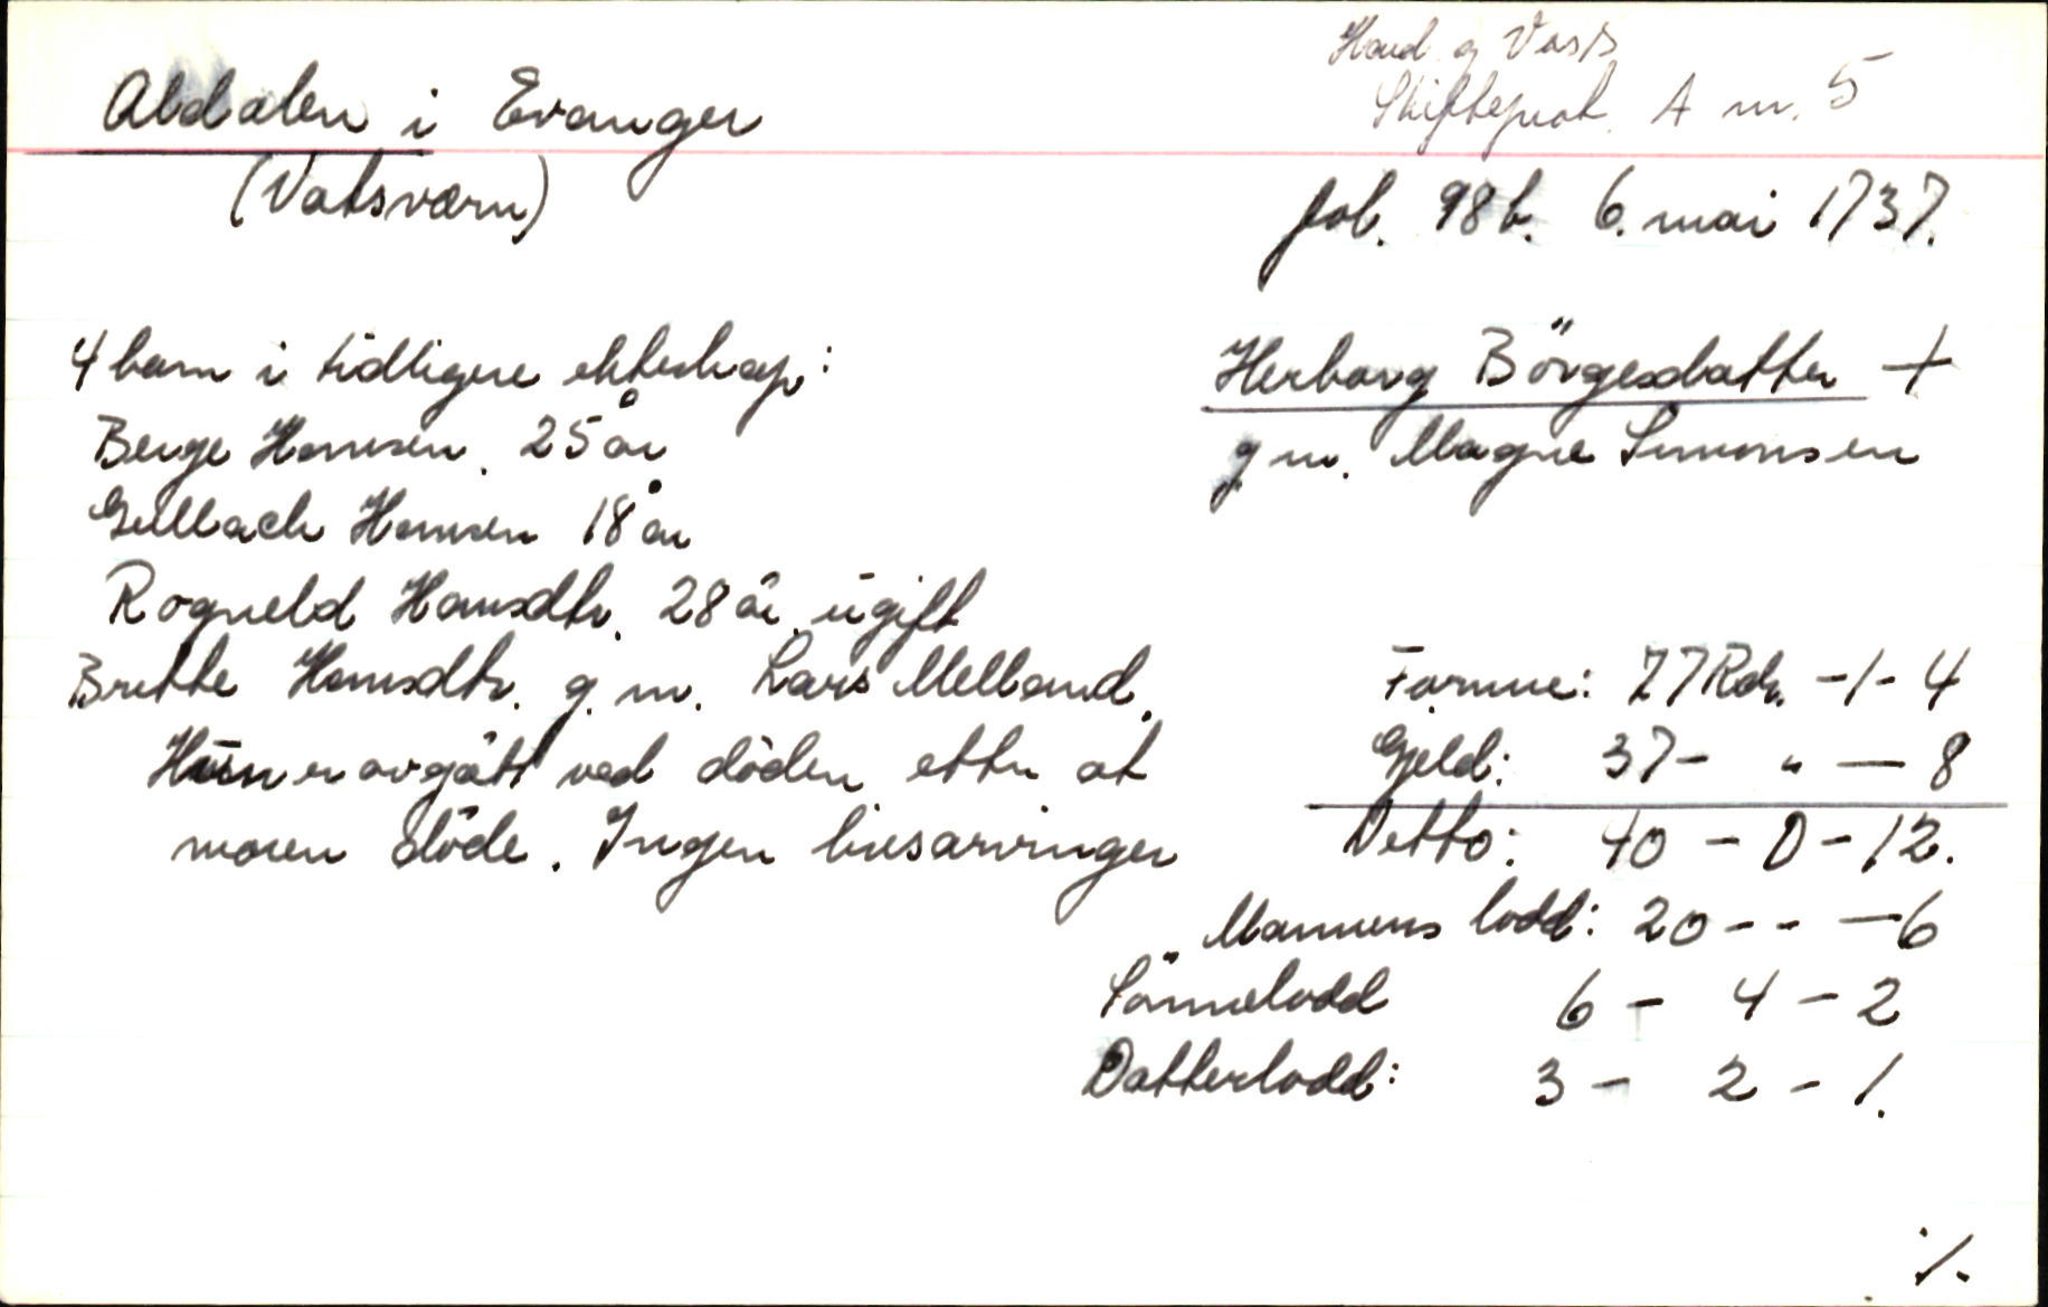 Hard. og Voss
Skifteprot. A nr. 5
Abdalen i Evanger
(Vatsværn)
fol. 98b. 6. mai 1737.
4 barn i tidligere ekteskap:
Berge Hansen. 25 år
Gullach Hansen 18 år
Rogneld Hansdtr. 28 år. ugift
Britte Hansdtr. g. m. Lars Melland.
Hun er avgått ved döden etter at
moren döde. Ingen livsarvinger
Herborg Börgesdatter +
g m. Magne Simonsen
Formue: 77 Rdr. -1- 4
Gjeld: 37 - " — 8
Netto: 40 - 0 - 12.
Mannens lodd: 20 - - — 6
Sönnelodd 6 - 4 - 2
Datterlodd: 3 - 2 - 1.
./.